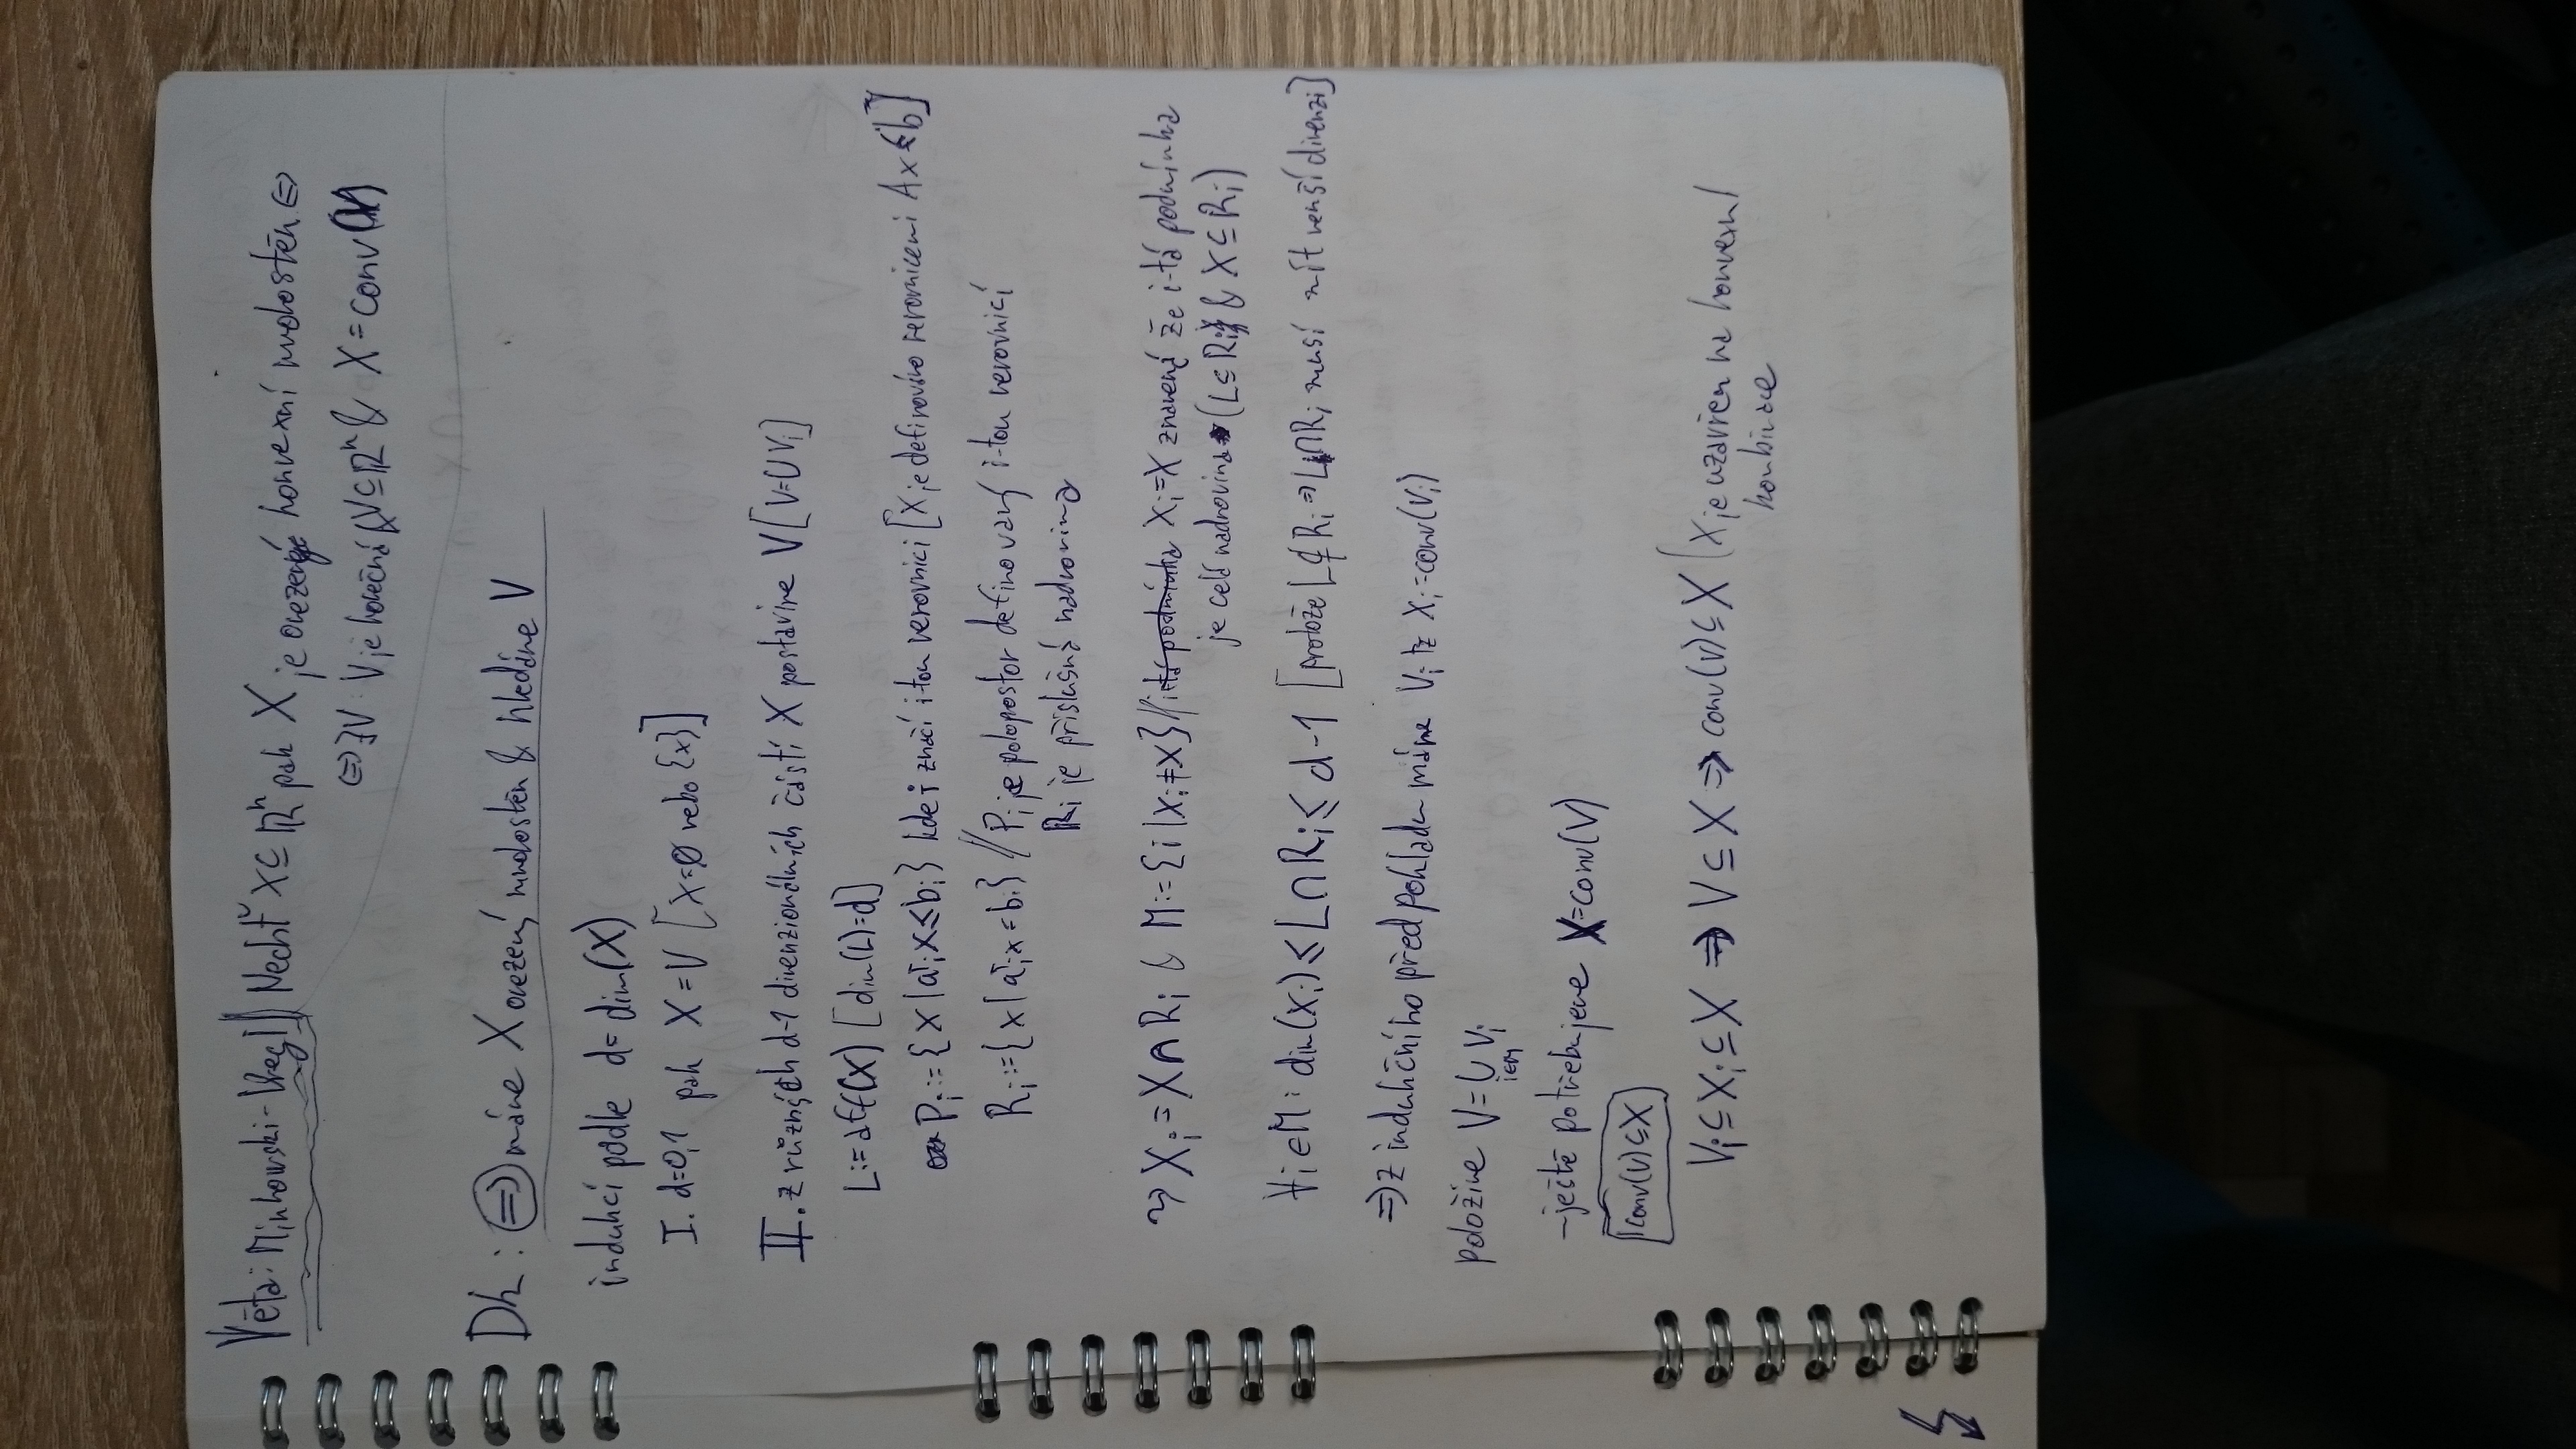 Věta: Minkowski-Weyl Nechť X ⊆ ℝⁿ pak X je omezený konvexní mnohostěn ⇔
⇔ ∃V: V je konečná & V ⊆ ℝⁿ & X = conv(V)
Dk: ⇒ máme X omezený mnohostěn & hledáme V
indukcí podle d = dim(X)
I. d=0,1 pak X = V [X=∅ nebo {x}]
II. z různých d-1 dimenzionálních částí X postavíme V [V=∪Vᵢ]
L := aff(X) [dim(L)=d]
Pᵢ := {x | aᵀᵢx ≤ bᵢ} kde i značí i-tou nerovnici [X je definováno nerovnicemi Ax ≤ b]
Rᵢ := {x | aᵀᵢx = bᵢ} // Pᵢ je poloprostor definovaný i-tou nerovnicí
Rᵢ je příslušná nadrovina
↝ Xᵢ = X ∩ Rᵢ & M := {i | Xᵢ ≠ X} // itá podmínka Xᵢ = X znamená že i-tá podmínka
je celá nadrovina (L ⊆ Rᵢ & X ⊆ Rᵢ)
∀i∈M: dim(Xᵢ) ≤ L∩Rᵢ ≤ d-1 [protože L ⊄ Rᵢ ⇒ L∩Rᵢ musí mít menší dimenzi]
⇒ z indukčního předpokladu máme Vᵢ tž Xᵢ = conv(Vᵢ)
položíme V = ∪ Vᵢ
i∈M
-ještě potřebujeme X = conv(V)
conv(V) ⊆ X
Vᵢ ⊆ Xᵢ ⊆ X ⇒ V ⊆ X ⇒ conv(V) ⊆ X [X je uzavřen na konvexní
kombinace